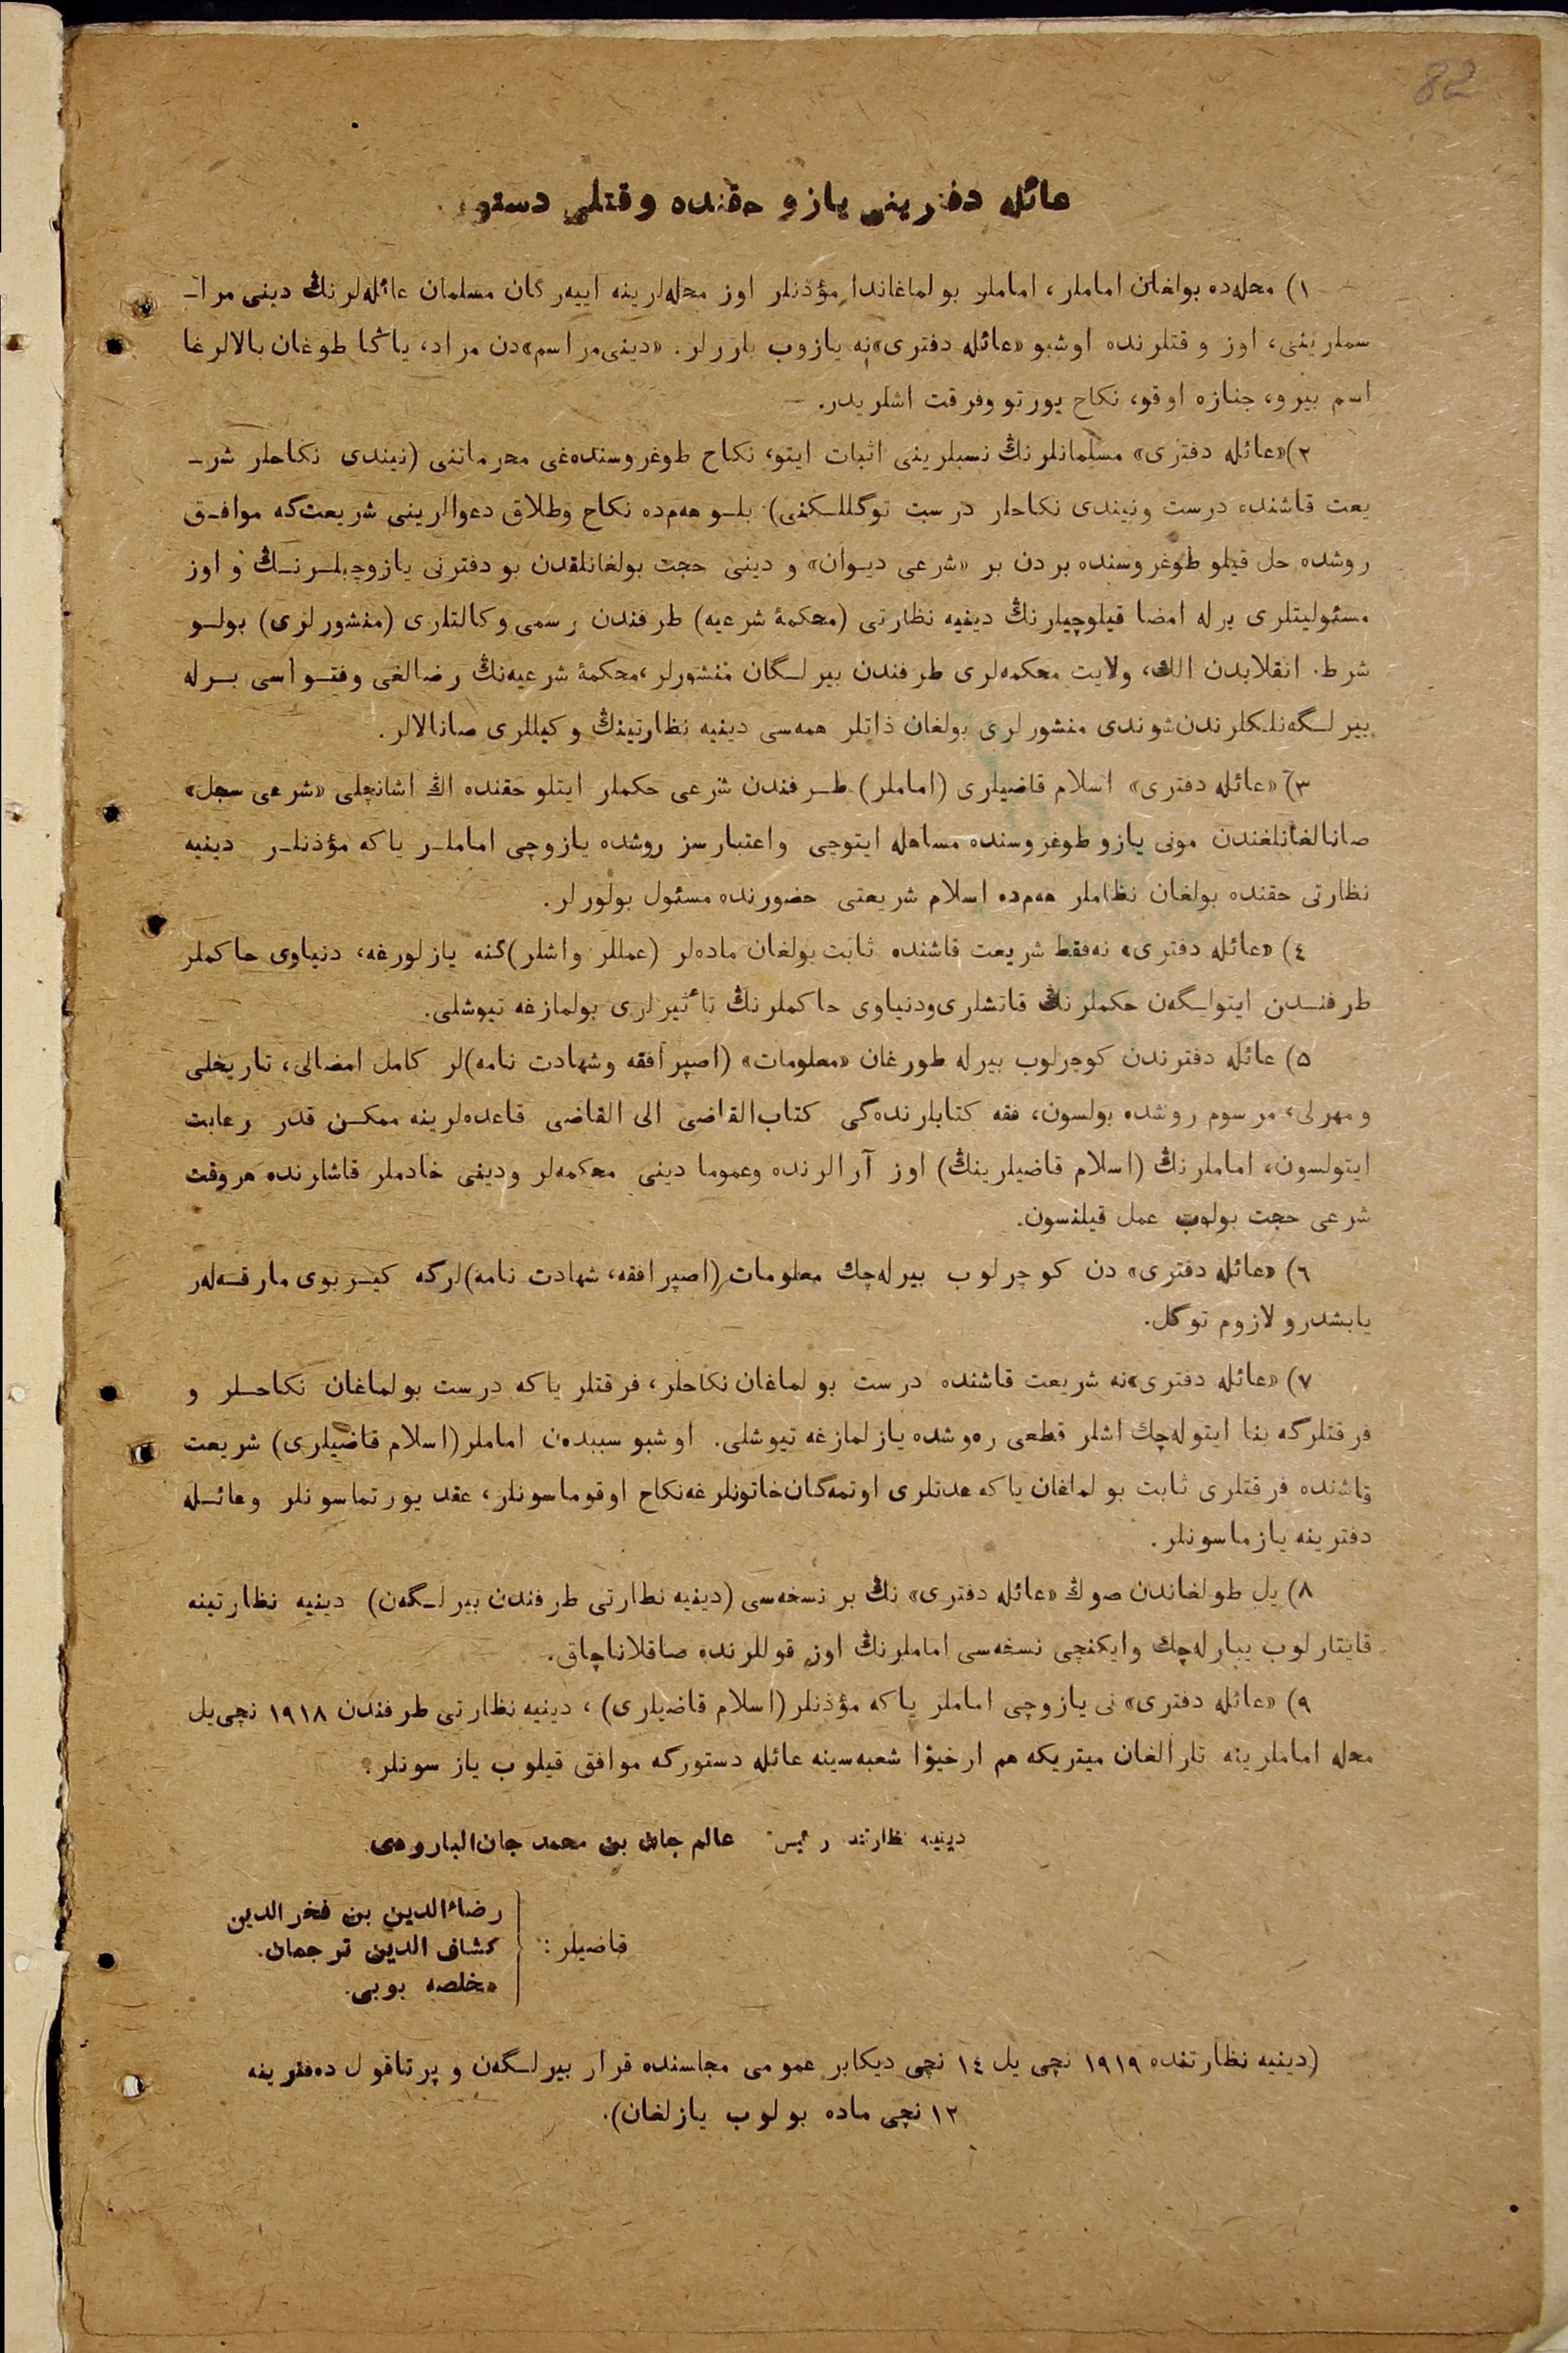 82
عائله دفترینی یازو حقنده وقتلی دستور.
١) محله‌ده بولغان اماملر، اماملر بولماغاندا مؤذنلر اوز محله‌لرینه اییه‌رگان مسلمان عائله‌لرنڭ دینی مرا‌ـ
سملرینی، اوز وقتلرنده اوشبو «عائله دفتری»نه یازوب بارر‌لر. «دینی‌مراسم»دن مراد، یاڭا طوغان بالالرغا
اسم بیرو، جنازه اوقو، نکاح یورتو وفرقت اشلریدر. —
٢)«عائله دفتری» مسلمانلرنڭ نسبلرینی اثبات ایتو، نکاح طوغروسنده‌غی محرماتنی (نیندی نکاحلر شرـ
یعت قاشنده درست ونیندی نکاحلر درست توگللـکنی) بلـو هه‌م‌ده نکاح وطلاق دعوالرینی شریعت‌که موافـق
روشده حل قیلو طوغروسنده بردن بر «شرعی دیـوان» و دینی حجت بولغانلقدن بو دفترنی یازوچیلـرنـڭ و اوز
مسئولیتلری برله امضا قیلوچیلرنڭ دینیه نظارتی (محکمهٔ شرعیه) طرفندن رسمی وکالتلری (منشورلری) بولـو
شرط. انقلابدن الك، ولایت محکمه‌لری طرفندن بیرلـگان منشورلر،محکمهٔ شرعیه‌نڭ رضالغی وفتـواسی بـرله
بیرلـگه‌نلکلرندن‌شوندی منشورلری بولغان ذاتلر همه‌سی دینیه نظارتینڭ وکیللری صانالالر.
٣) «عائله دفتری» اسلام قاضیلری (اماملر) طـرفندن شرعی حکملر ایتلو حقنده اڭ اشانچلی «شرعی سجل»
صانالغانلغندن مونی یازو طوغروسنده مساهله ایتوچی واعتبارسز روشده یازوچی اماملـر یاکه مؤذنلـر دینیه
نظارتی حقنده بولغان نظاملر هه‌م‌ده اسلام شریعتی حضورنده مسئول بولورلر.
٤) «عائله دفتری» نه‌فقط شریعت قاشنده ثابت بولغان ماده‌لر (عمللر واشلر)گنه یازلورغه، دنیاوی حاکملر
طرفنـدن ایتولـگه‌ن حکملرنڭ قاتشلری‌ودنیاوی حاکملرنڭ تأثیرلری بولمازغه تیوشلی.
٥) عائله دفترندن کوچرلوب بیرله طورغان «معلومات» (اصپرافقه وشهادت نامه)لر کامل امضالی، تاریخلی
ومهرلی، مرسوم روشده بولسون، فقه کتابلرنده‌گی کتاب‌القاضی الی القاضی قاعده‌لرینه ممکـن قدر رعایت
ایتولسون، اماملرنڭ (اسلام قاضیلرینڭ) اوز آرالرنده وعموما دینی محکمه‌لر ودینی خادملر قاشلرنده هروقت
شرعی حجت بولوب عمل قیلنسون.
٦) «عائله دفتری» دن کوچرلوب بیرله‌چك معلومات (اصپرافقه، شهادت نامه)لرگه کیـربوی مارقـه‌لر
یابشدرو لازوم توگل.
٧) «عائله دفتری»نه شریعت قاشنده درست بولماغان نکاحلر، فرقتلر یاکه درست بولماغان نکاحـلر و
فرقتلرگه بنا ایتوله‌چك اشلر قطعی ره‌وشده یازلمازغه تیوشلی. اوشبو سببدن اماملر(اسلام قاضیلری) شریعت
قاشنده فرقتلری ثابت بولماغان یاکه عدتلری اوتمه‌گان‌خاتونلرغه‌نکاح اوقوماسونلر، عقد یورتماسونلر وعائـله
دفترینه یازماسونلر.
٨) یل طولغاندن صوڭ «عائله دفتری» نڭ بر نسخه‌سی (دینیه نظارتی طرفندن بیرلـگه‌ن) دینیه نظارتینه
قایتارلوب یبارله‌چك وایکنچی نسخه‌سی اماملرنڭ اوز قوللرنده صاقلاناچاق.
٩) «عائله دفتری» نی یازوچی اماملر یاکه مؤذنلر(اسلام قاضیلری)، دینیه نظارتی طرفندن ١٩١٨ نچی‌یل
محله اماملرینه تارالغان میتریکه هم ارخیوا شعبه‌سینه عائله دستورگه موافق قیلوب یازسونلر.
دینیه نظارتند رئیس عالم جان بن محمد جان‌البارودی
قاضیلر:
رضاءالدین بن فخرالدین
کشاف الدین ترجمان.
مخلصه بوبی.
(دینیه نظارتنده ١٩١٩ نچی یل ١٤ نچی دیکابر عمومی مجلسنده قرار بیرلـگه‌ن و پرتاقول ده‌فترینه
١٢ نچی ماده بولوب یازلغان).